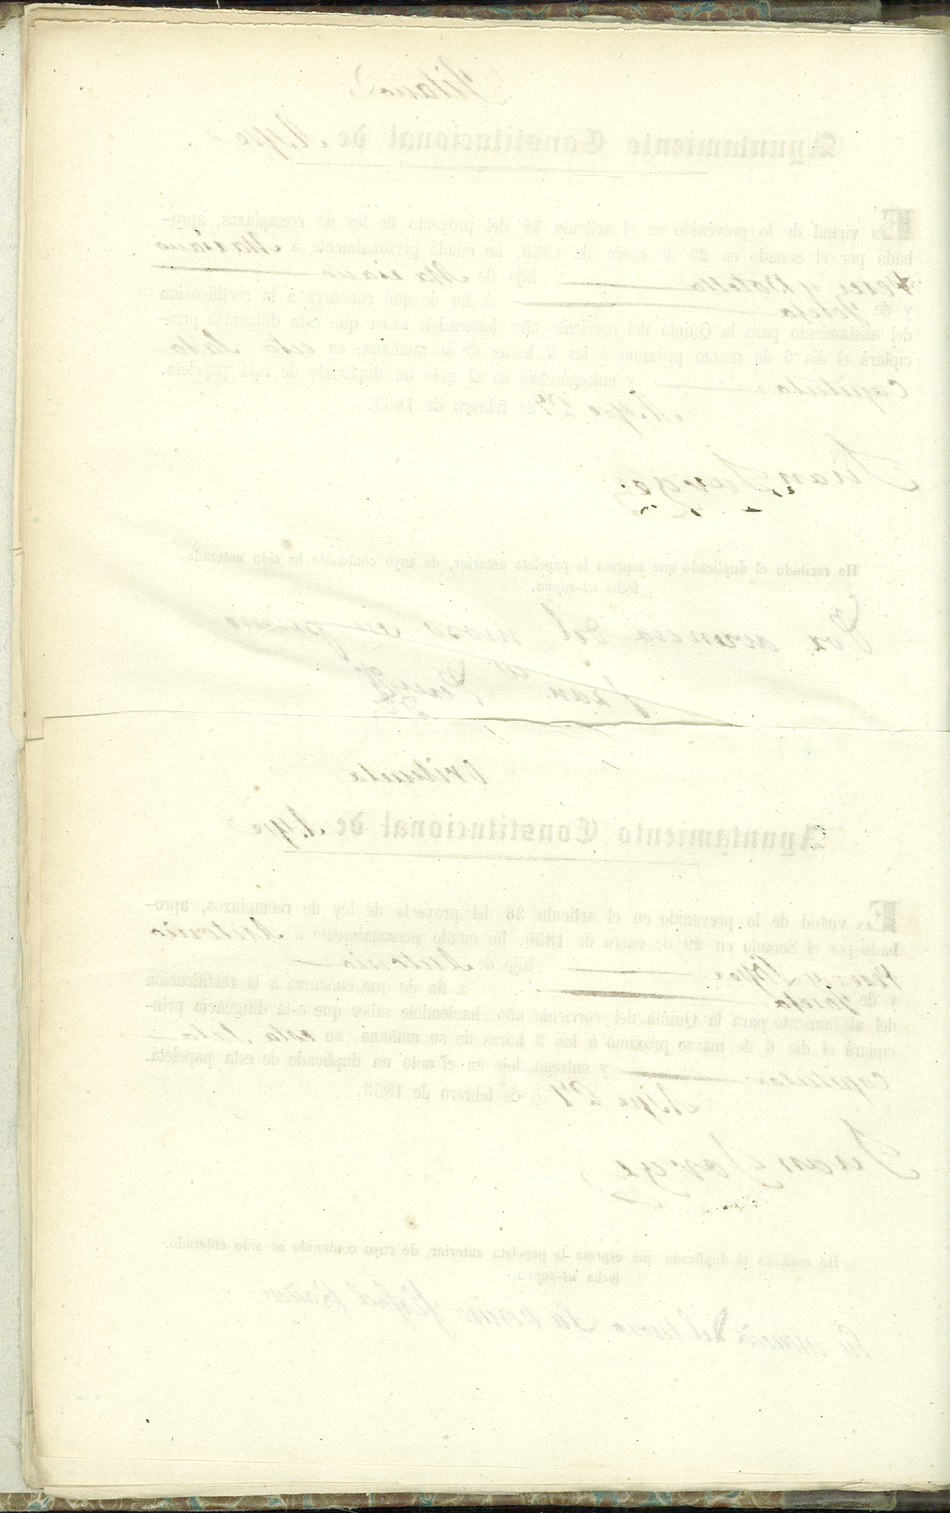 Gitano
Ayuntamiento Constitucional de Aspe
En virtud de lo prevenido en el artículo 36 del proyecto de ley de reemplazos, apro-
bado por el Senado en 29 de enero de 1850, he citado personalmente á Mariano
y Botella hijo de Mariano
y de Josefa á fin de que concurra á la rectificacion
del alistamiento para la Quinta del corriente año, haciéndole saber que esta diligencia prin-
cipiará el dia 6 de marzo próximo á las 3 horas de su mañana, en esta Sala
Capitular y entregándole en el acto un duplicado de esta papeleta.
Aspe 27 de febrero de 1853.
Juan
He recibido el duplicado que espresa la papeleta anterior, de cuyo contenido he sido enterado,
fecha ut-supra.
Por ausencia del mozo su primo
Fran.co
Orihuela
Ayuntamiento Constitucional de Aspe
En virtud de lo prevenido en el artículo 36 del proyecto de ley de reemplazos, apro-
bado por el Senado en 29 de enero de 1850, he citado personalmente á Antonio
y hijo de Antonio
y de Josefa á fin de que concurra á la rectificacion
del alistamiento para la Quinta del corriente año, haciéndole saber que esta diligencia prin-
cipiará el dia 6 de marzo próximo á las 3 horas de su mañana, en esta Sala
Capitular y entregándole en el acto un duplicado de esta papeleta.
Aspe 27 de febrero de 1853.
Juan
He recibido el duplicado que espresa la papeleta anterior, de cuyo contenido he sido enterado,
fecha ut-supra.
del mozo